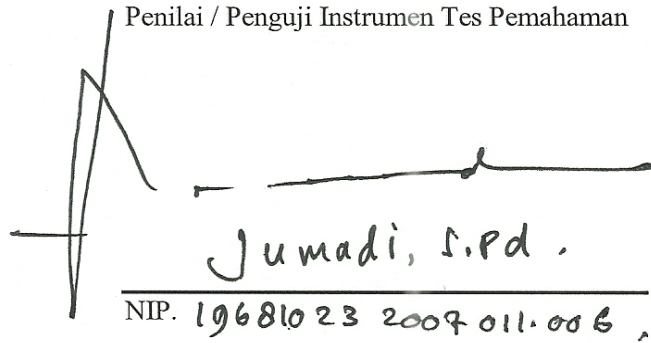 Penilai / Penguji Instrumen Tes Pemahaman
Jumadi, S.Pd.
NIP. 19681023 2007 011.006.